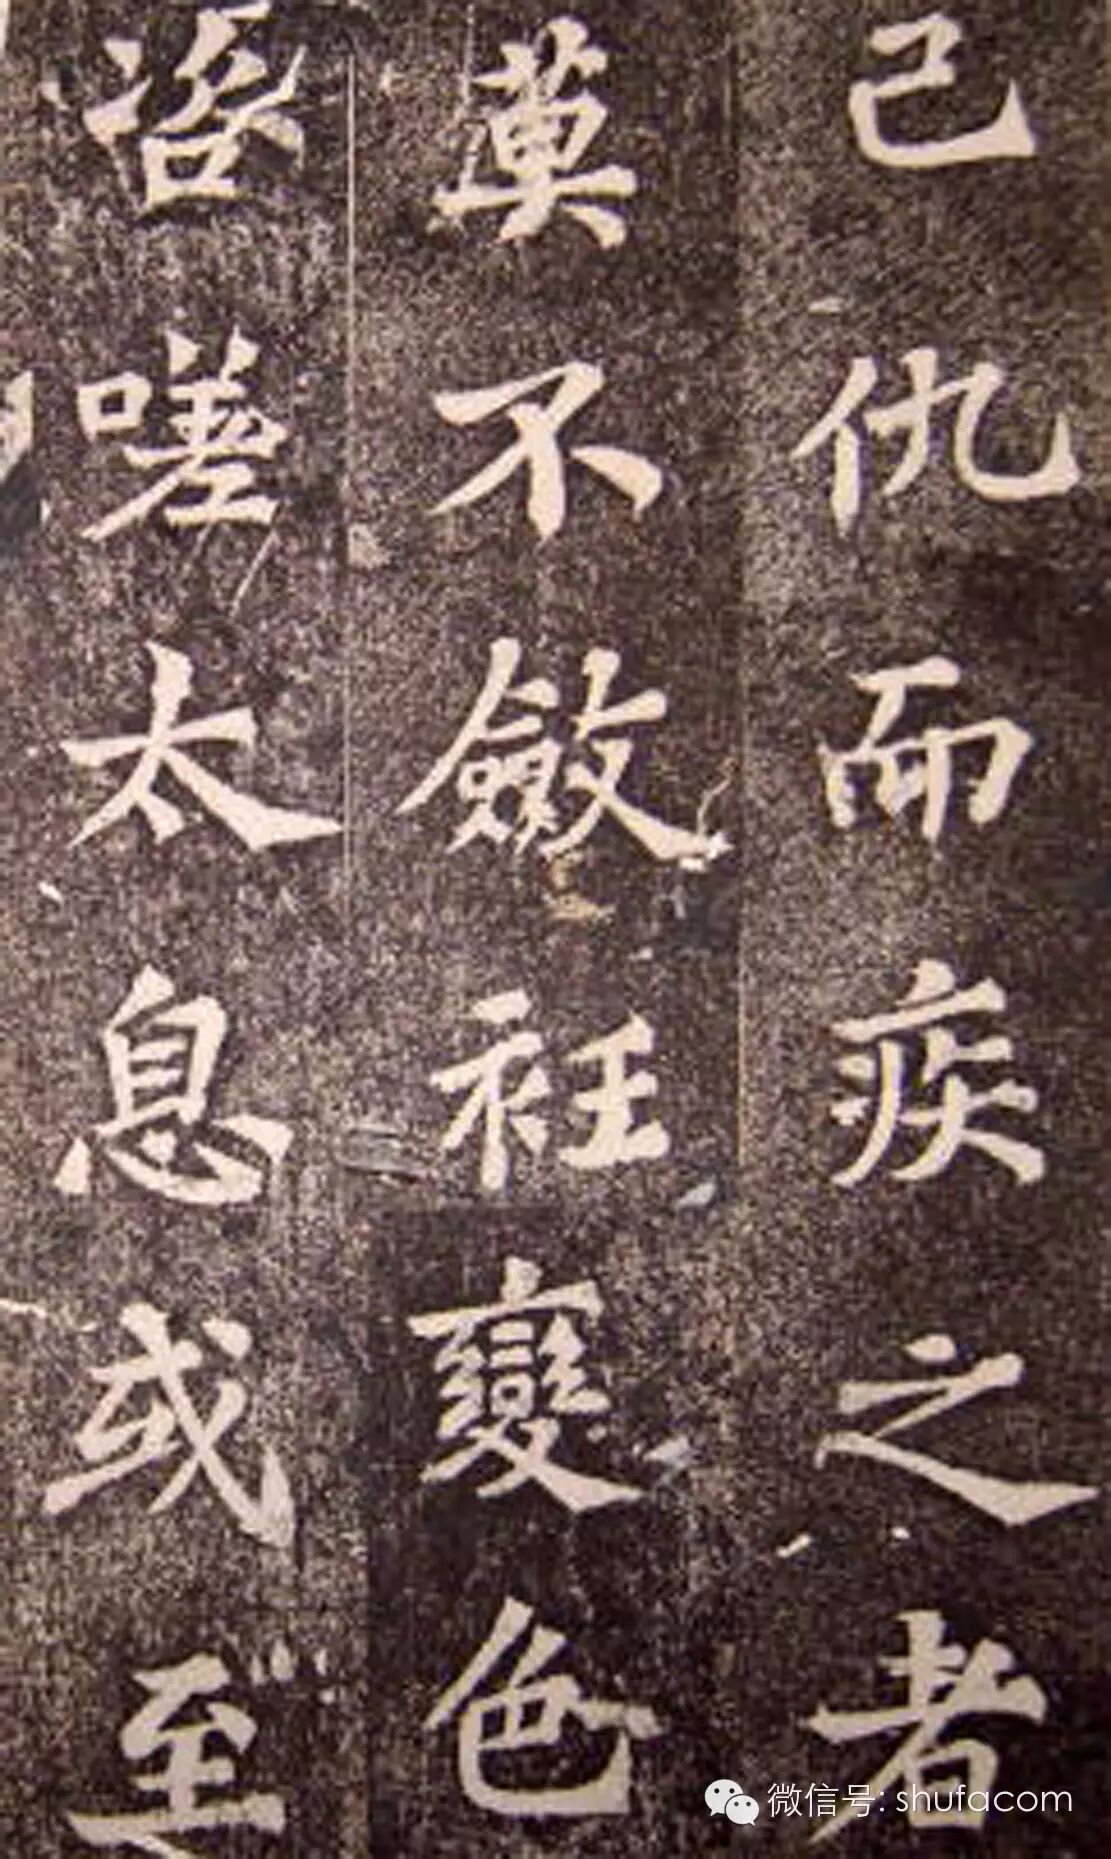 己仇而疾之者
莫不斂衽變色
咨嗟太息或至
微信号: shufacom